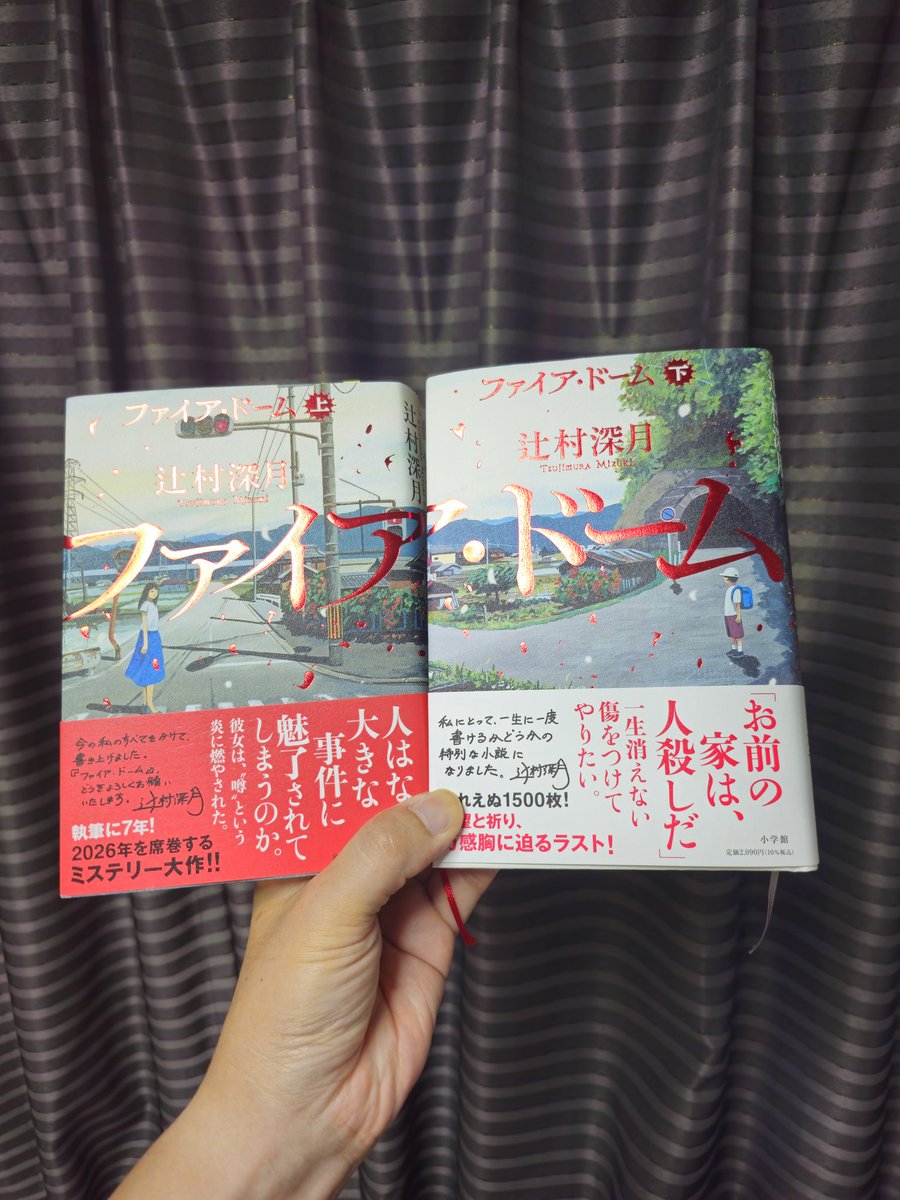 ファイア・ドーム 上
辻村深月
TSUJIMURA MIZUKI
ファイア・ドーム
辻村深月
人はな
大きな
事件に
魅了されて
しまうのか。
彼女は、“噂”という
炎に燃やされた。
今の私のすべてをかけて、
書き上げました。
『ファイア・ドーム』、
どうぞよろしくお願い
いたします。 辻村深月
執筆に7年!
2026年を席巻する
ミステリー大作!!
ファイア・ドーム 下
辻村深月
TSUJIMURA MIZUKI
「お前の
家は、
人殺しだ」
一生消えない
傷をつけて
やりたい。
私にとって、一生に一度
書けるかどうかの
特別な小説に
なりました。 辻村深月
れえぬ1500枚!
望と祈り、
感胸に迫るラスト!
小学館
定価2,090円(10%税込)